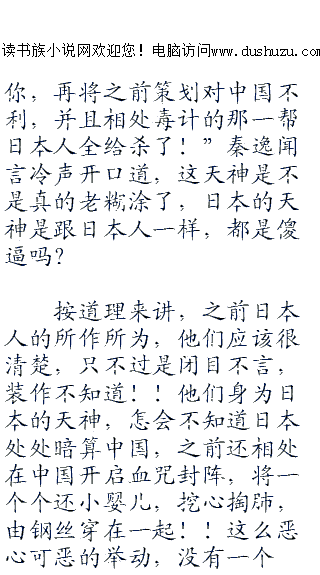 读书族小说网欢迎您！电脑访问www.dushuzu.com
你，再将之前策划对中国不
利，并且相处毒计的那一帮
日本人全给杀了！”秦逸闻
言冷声开口道，这天神是不
是真的老糊涂了，日本的天
神是跟日本人一样，都是傻
逼吗？
按道理来讲，之前日本
人的所作所为，他们应该很
清楚，只不过是闭目不言，
装作不知道！！他们身为日
本的天神，怎会不知道日本
处处暗算中国，之前还相处
在中国开启血咒封阵，将一
个个还小婴儿，挖心掏肺，
由钢丝穿在一起！！这么恶
心可恶的举动，没有一个